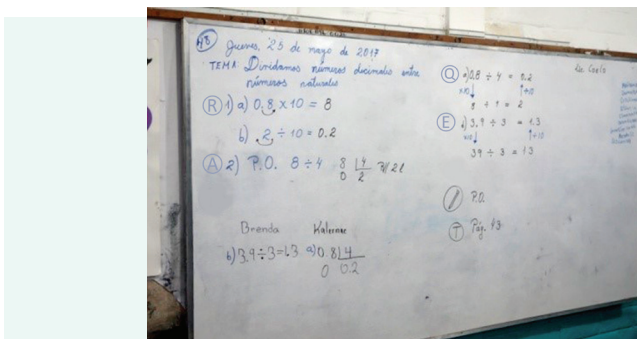 48
Jueves, 25 de mayo de 2017
TEMA Dividamos números decimales entre
números naturales
R 1) a) 0.8 x 10 = 8
b) 2 ÷ 10 = 0.2
A 2) P.O. 8 ÷ 4 8 4
0 2
Brenda
b) 3.9 ÷ 3 = 1.3 a) 0.8 4
0 0.2
Q a) 0.8 ÷ 4 = 0.2
x10 ÷10
8 ÷ 4 = 2
E b) 3.9 ÷ 3 = 1.3
x10 ÷10
39 ÷ 3 = 13
P.O.
T Pág. 43